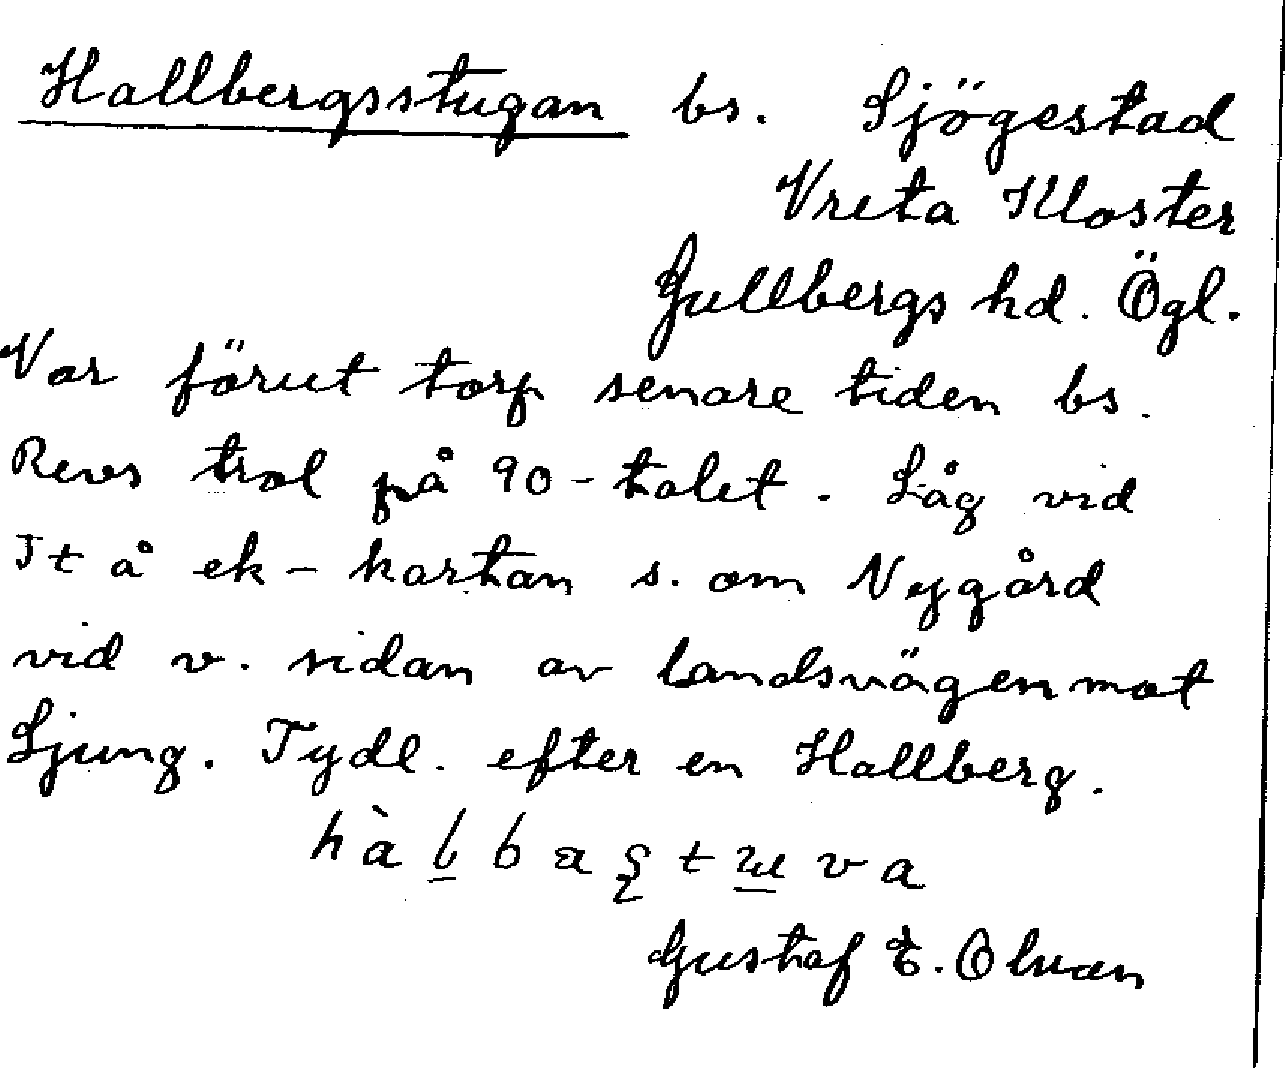 Hallbergsstugan bs. Sjögestad
Vreta Kloster
Gullbergs hd. Ögl.
Var förut torp senare tiden bs.
Revs trol på 90-talet. Låg vid
It å ek-kartan s. om Nygård
vid v. sidan av landsvägen mot
Ljung. Tydl. efter en Hallberg.
hàl̲başt va
Gustaf E. Olvan